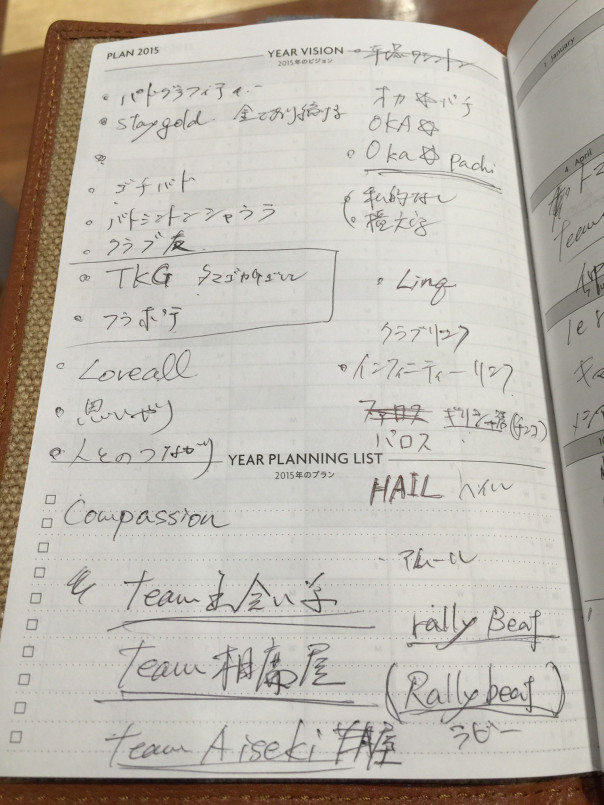 PLAN 2015
YEAR VISION
2015年のビジョン
バドグラフィティー
stay gold. 金であり続ける
ゴチバド
バドミントンシャララ
クラブ友
TKG タマゴかけごはん
フラポテ
Loveall
思いやり
人とのつながり
オカ☆パチ
OKA☆
Oka☆pachi
私的なし
Linq
クラブリンク
インフィニティーリンク
パロス
YEAR PLANNING LIST
2015年のプラン
HAIL ヘイル
Compassion
アムール
team 出会い学
rally Beat
team 相席屋
(Rally beat)
ラビー
team Aiseki 屋
1 January
4 April
team